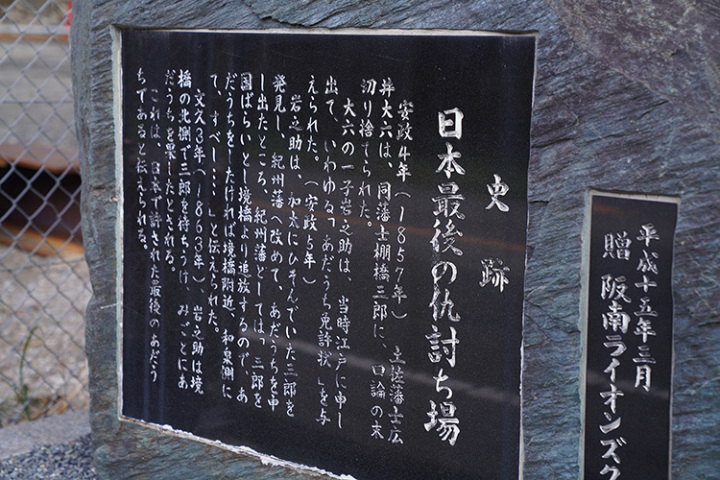 史跡
日本最後の仇討ち場
安政4年(1857年) 土佐藩士広
井大六は、同藩士棚橋三郎に、口論の末
切り捨てられた。
大六の一子岩之助は、当時江戸に申し
出て、いわゆる「あだうち免許状」を与
えられた。(安政5年)
岩之助は、加太にひそんでいた三郎を
発見し、紀州藩へ改めて、あだうちを申
し出たところ、紀州藩としては「三郎を
国ばらいとし境橋より追放するので、あ
だうちをしたければ境橋附近、和泉側に
て、すべし‥‥」と伝えられた。
文久3年(1863年) 岩之助は境
橋の北側で三郎を待ちうけ、みごとにあ
だうちを果したとされる。
これは、日本で許された最後のあだう
ちであると伝えられる。
平成十五年三月
贈 阪南ライオンズク